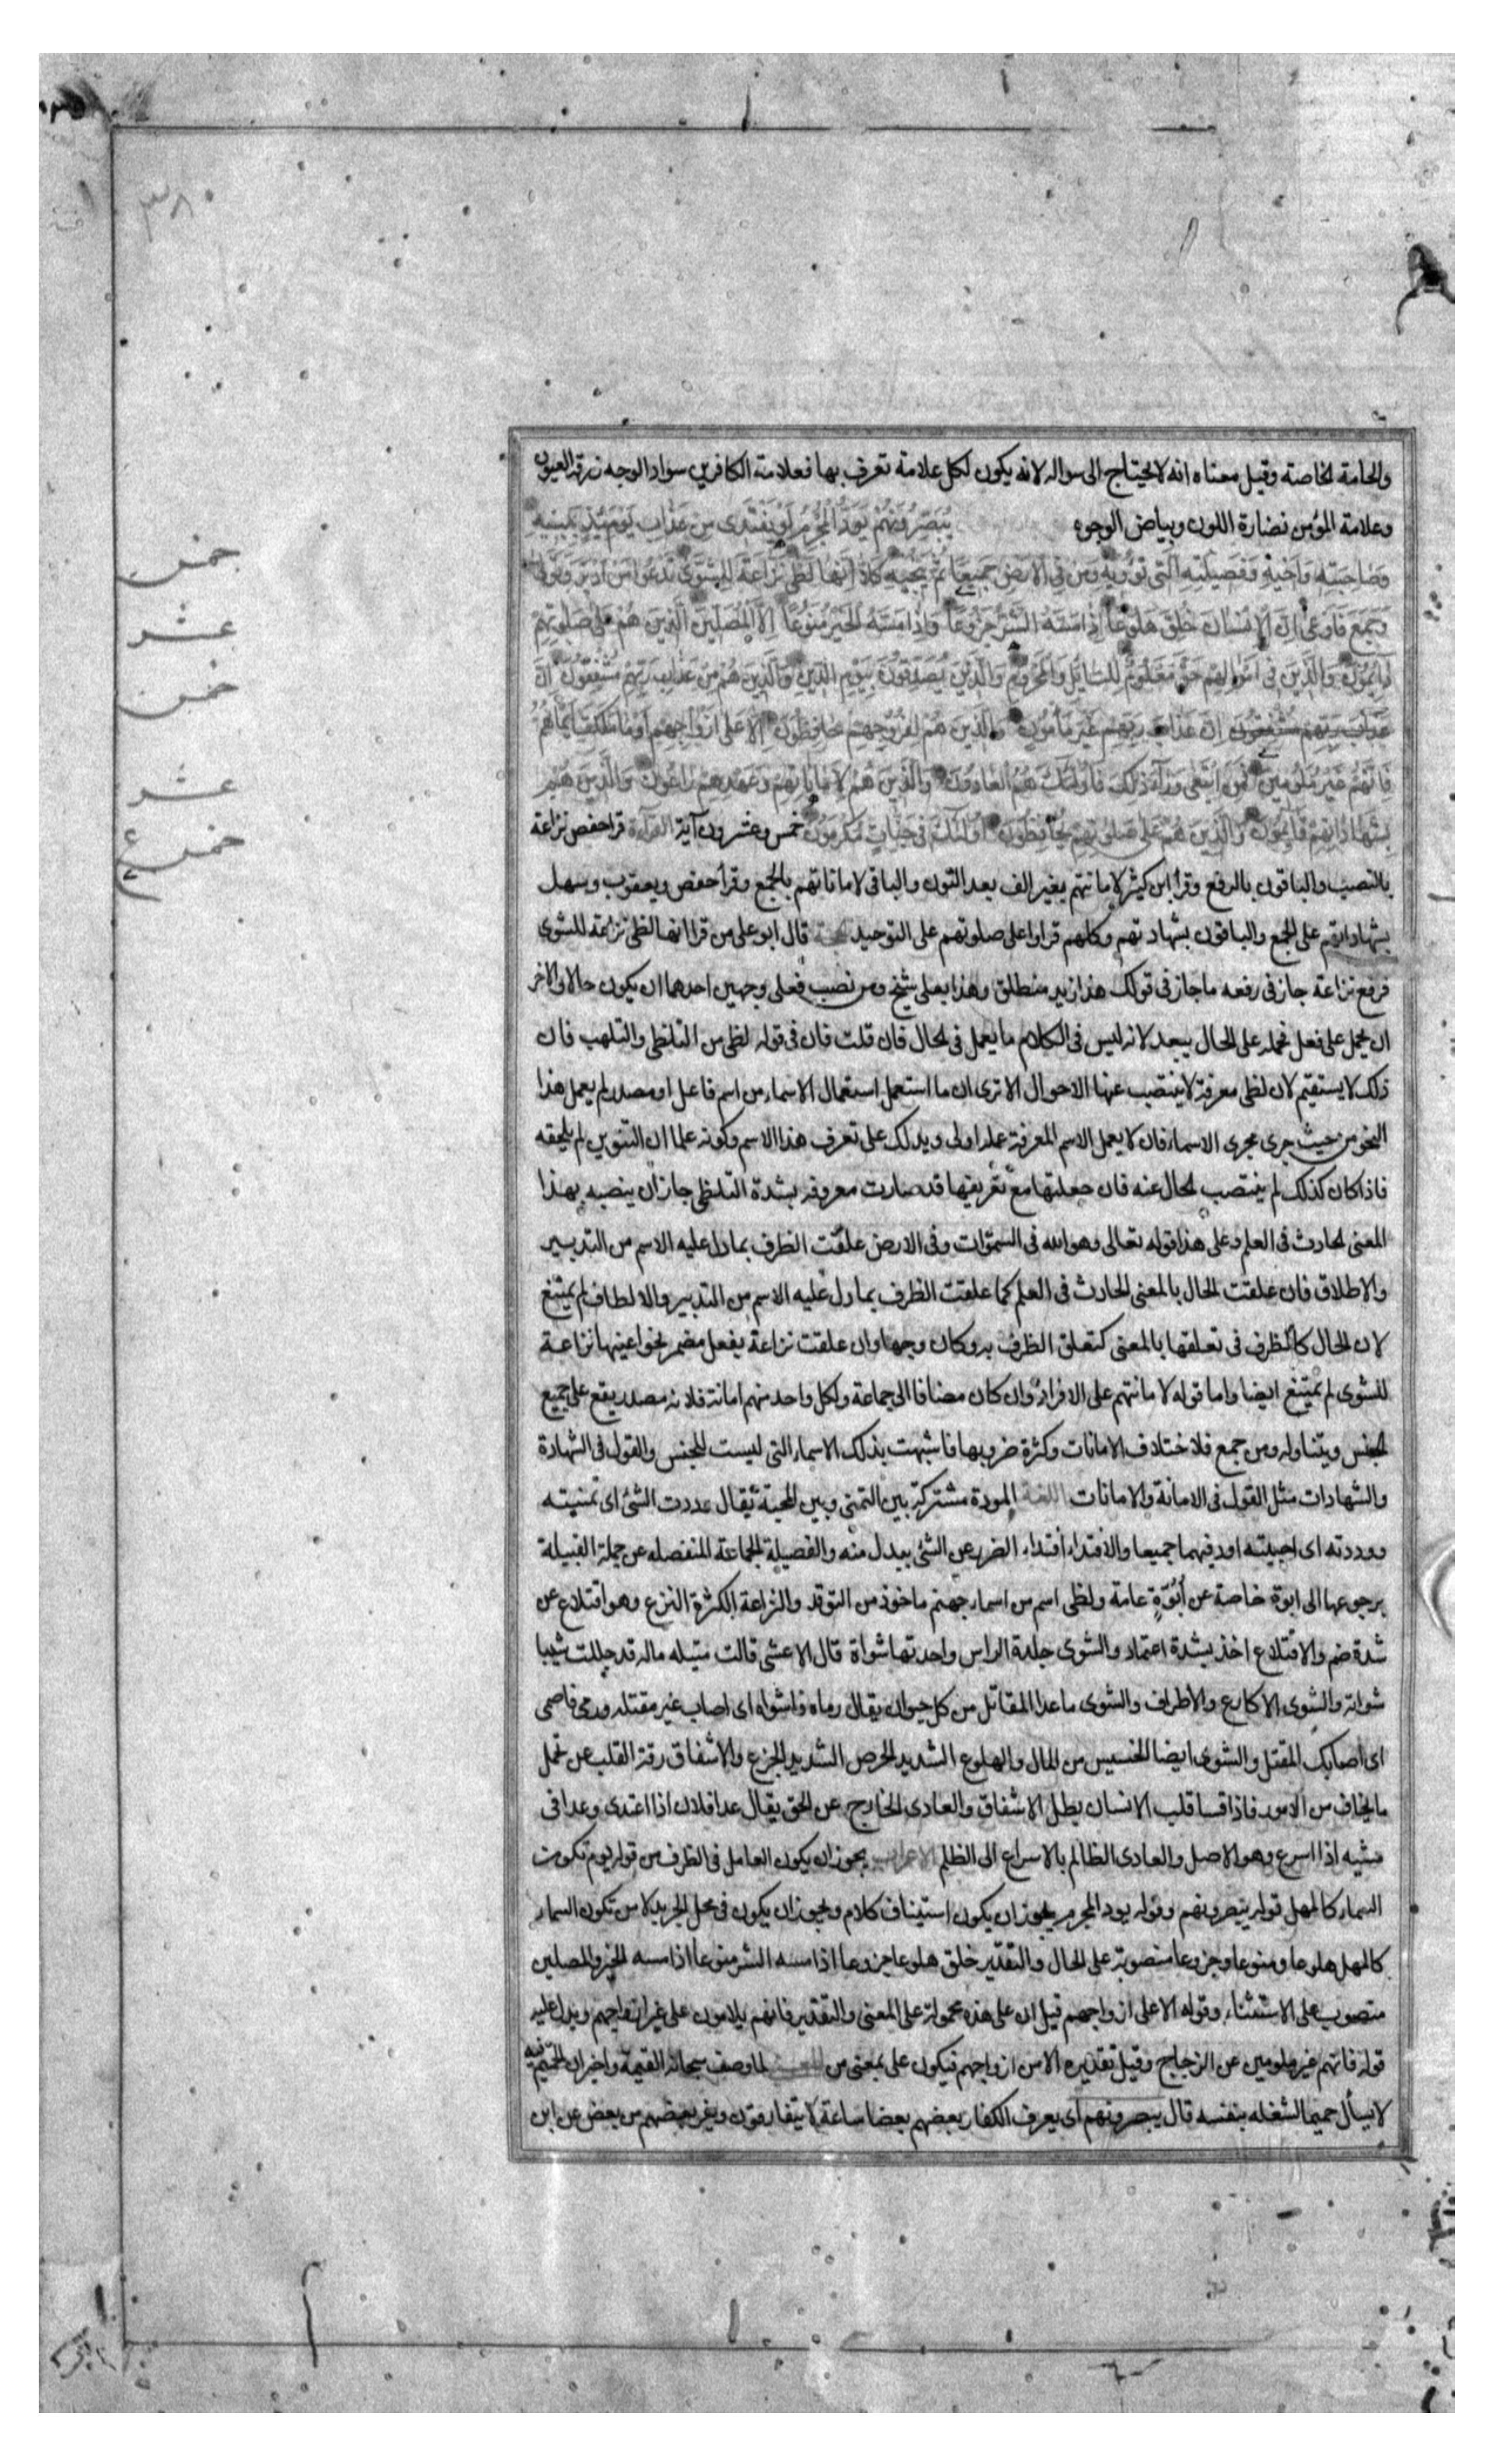 والحامة لخاصته وقيل معناه انه لا يحتاج الى سواله لانه يكون لكل علامة تعرف بها فعلامة الكافرين سواد الوجه زرقة العيون
وعلامة المؤمن نضارة اللون وبياض الوجوه يُبَصَّرُونَهُمْ يَوَدُّ الْمُجْرِمُ لَوْ يَفْتَدِى مِنْ عَذَابِ يَوْمَئِذٍ بِبَنِيهِ
وَصَاحِبَتِهِ وَاَخِيهِ وَفَصِيلَتِهِ الَّتِى تُؤْوِيهِ وَمَنْ فِى الْاَرْضِ جَمِيعًا ثُمَّ يُنْجِيهِ كَلَّا اِنَّهَا لَظَى نَزَّاعَةً لِلشَّوَى تَدْعُوا مَنْ اَدْبَرَ وَتَوَلَّى
وَجَمَعَ فَاَوْعَى اِنَّ الْاِنْسَانَ خُلِقَ هَلُوعًا اِذَا مَسَّهُ الشَّرُّ جَزُوعًا وَاِذَا مَسَّهُ الْخَيْرُ مَنُوعًا اِلَّا الْمُصَلِّينَ الَّذِينَ هُمْ عَلَى صَلٰوتِهِمْ
دَائِمُونَ وَالَّذِينَ فِى اَمْوَالِهِمْ حَقٌّ مَعْلُومٌ لِلسَّائِلِ وَالْمَحْرُومِ وَالَّذِينَ يُصَدِّقُونَ بِيَوْمِ الدِّينِ وَالَّذِينَ هُمْ مِنْ عَذَابِ رَبِّهِمْ مُشْفِقُونَ اِنَّ
عَذَابَ رَبِّهِمْ مُشْفِقُونَ اِنَّ عَذَابَ رَبِّهِمْ غَيْرُ مَأْمُونٍ وَالَّذِينَ هُمْ لِفُرُوجِهِمْ حَافِظُونَ اِلَّا عَلَى اَزْوَاجِهِمْ اَوْ مَا مَلَكَتْ اَيْمَانُهُمْ
فَاِنَّهُمْ غَيْرُ مَلُومِينَ فَمَنِ ابْتَغَى وَرَاءَ ذَلِكَ فَاُولَئِكَ هُمُ الْعَادُونَ وَالَّذِينَ هُمْ لِاَمَانَاتِهِمْ وَعَهْدِهِمْ رَاعُونَ وَالَّذِينَ هُمْ
بِشَهَادَاتِهِمْ قَائِمُونَ وَالَّذِينَ هُمْ عَلَى صَلٰوتِهِمْ يُحَافِظُونَ اُولَئِكَ فِى جَنَّاتٍ مُكْرَمُونَ خمس وعشرون آية القراءة قرا حفص نزاعة
بالنصب والباقون بالرفع وقرا ابن كيثر لامانتهم بغير الف بعد النون والباقى لاماناتهم بالجمع وقرأ حفص ويعقوب وسهل
بشهاداتهم على الجمع والباقون بشهادتهم وكلهم قراوا على صلوتهم على التوحيد قال ابو على من قرا انها لظى نزاعة للشوى
فرفع نزاعة جاز فى رفعه ما جاز فى قولك هذا زيد منطلق وهذا بعلى شيخ ومن نصب فعلى وجهين احدهما ان يكون حالا والاخر
ان يحمل على فعل فحمله على الحال يبعد لانه ليس فى الكلام ما يعمل فى الحال فان قلت فان فى قوله لظى من التلظى والتلهب فان
ذلك لا يستقيم لان لظى معرفة لا ينتصب عنها الاحوال الا ترى ان ما استعمل استعمال الاسماء من اسم فاعل او مصدر لم يعمل هذا
النحو من حيث جرى مجرى الاسماء فان لا يعمل الاسم المعرفة عمله اولى ويدلك على تعرف هذا الاسم وكونه علما ان التنوين لم يلحقه
فاذا كان كذلك لم ينتصب الحال عنه فان جعلتها مع تعريفها قد صارت معروفة بشدة التلظى جاز ان ينصبه بهذا
المعنى الحادث فى العلم وعلى هذا قوله تعالى وهو الله فى السموات وفى الارض علقت الظرف بما دل عليه الاسم من التدبير
والاطلاق فان علقت الحال بالمعنى الحادث فى العلم كما علقت الظرف بما دل عليه الاسم من التدبير والالطاف لم يمتنع
لان الحال كالظرف فى تعلقها بالمعنى كتعلق الظرف به وكان وجها وان علقت نزاعة بفعل مضمر نحو اعنيها نزاعة
للشوى لم يمتنع ايضا واما قوله لامانتهم على الافراد وان كان مضافا الى جماعة ولكل واحد منهم امانة فلانه مصدر يقع على جميع
الجنس ويتناوله ومن جمع فلاختلاف الامانات وكثرة ضروبها فاشبهت بذلك الاسماء التى ليست للجنس والقول فى الشهادة
والشهادات مثل القول فى الامانة والامانات اللغة المودة مشتركة بين التمنى وبين المحبة يقال عددت الشئ اى تمنيته
ووددته اى احببته اود فيهما جميعا والافتداء افتداء الضر عن الشئ ببدل منه والفصيلة الجماعة المنفصله عن جملة القبيلة
برجوعها الى ابوة خاصة عن اُبُوَّةٍ عامة ولظى اسم من اسماء جهنم ماخوذ من التوقد والنزاعة الكثرة النزع وهو اقتلاع عن
شدة ضم والاقتلاع اخذ بشدة اعتماد والشوى جلدة الراس واحدتها شواة قال الاعشى قالت قتيله ماله قد جللت شيبا
شواته والشوى الاكارع والاطراف والشوى ما عدا المقاتل من كل حيوان يقال رماه فاشواه اى اصاب غير مقتله ورمى فاصمى
اى اصابك المقتل والشوى ايضا الخسيس من المال والهلوع الشديد الحرص الشديد الجزع والاشفاق رقة القلب عن تحمل
ما يخاف من الامور فاذا قسا قلب الانسان بطل الاشفاق والعادى الخارج عن الحق يقال عدا فلان اذا اعتدى وعدا فى
مشيه اذا اسرع وهو الاصل والعادى الظالم بالاسراع الى الظلم الاعراب يجوز ان يكون العامل فى الظرف من قوله يوم تكون
السماء كالمهل قوله يبصرونهم وقوله يود المجرم يجوز ان يكون استيناف كلام ويجوز ان يكون فى محل الجر بدلا من تكون السماء
كالمهل هلوعا ومنوعا وجزوعا منصوبة على الحال والتقدير خلق هلوعا جزوعا اذا مسه الشر منوعا اذا مسه الخير والمصلين
منصوب على الاستثناء وقوله الا على ازواجهم قيل ان على هذه محمولة على المعنى والتقدير فانهم يلامون على غير ازواجهم ويدل عليه
قوله فانهم غير ملومين عن الزجاج وقيل تقديره الا من ازواجهم فيكون على بمعنى من المعنى لما وصف سبحانه القيمة واخبر ان الحميم فيه
لا يسأل حميما لشغله بنفسه قال يبصرونهم اى يعرف الكفار بعضهم بعضا ساعة لا يتفارقون ويفر بعضهم من بعض عن ابن
خمس
عشر
خمس
عشر
خمس ع
٣٨٠